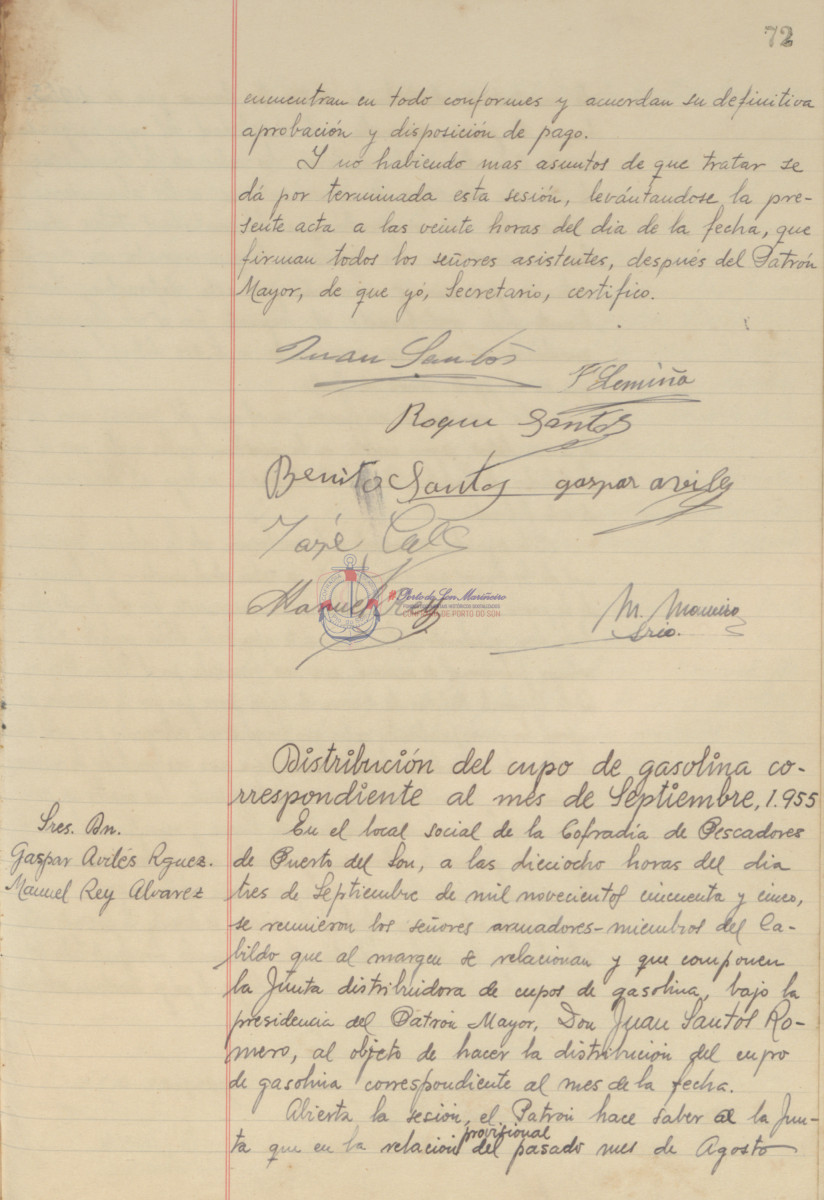 72
encuentran en todo conformes y acuerdan su definitiva
aprobación y disposición de pago.
Y no habiendo mas asuntos de que tratar se
dá por terminada esta sesión, levántandose la pre-
sente acta a las veinte horas del dia de la fecha, que
firman todos los señores asistentes, después del Patrón
Mayor, de que yó, Secretario, certifico.
Juan Santos
Roque Santos
Benito Santos gaspar aviles
José
Manuel Rey
M.
Srio.
Porto do Son Mariñeiro
Distribución del cupo de gasolina co-
rrespondiente al mes de Septiembre, 1.955
Sres. Dn.
Gaspar Avilés Rguez.
Manuel Rey Alvarez
En el local social de la Cofradia de Pescadores
de Puerto del Son, a las dieciocho horas del dia
tres de Septiembre de mil novecientos cincuenta y cinco,
se reunieron los señores armadores-miembros del Ca-
bildo que al margen se relacionan y que componen
la Junta distribuidora de cupos de gasolina, bajo la
presidencia del Patrón Mayor, Don Juan Santos Ro-
mero, al objeto de hacer la distribución del cupo
de gasolina correspondiente al mes de la fecha.
Abierta la sesión, el Patrón hace saber a la Jun-
ta que en la relación provisional del pasado mes de Agosto